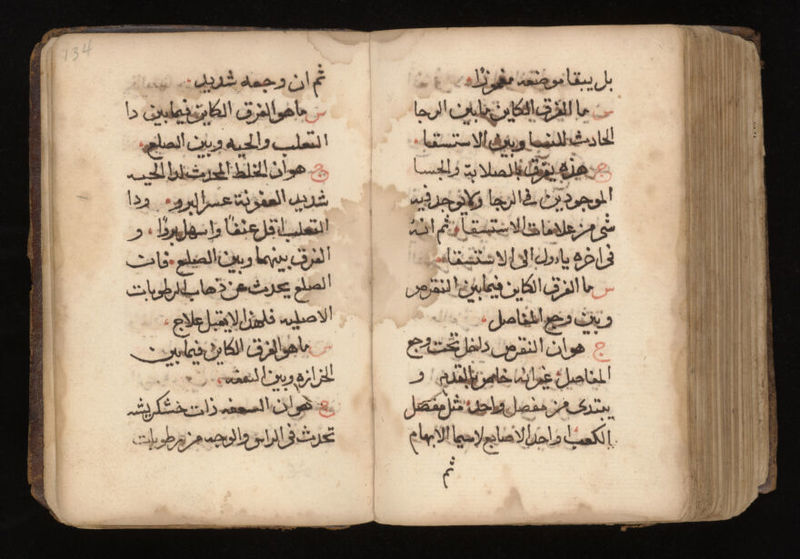 بل يبقا موضعه مغموزًا.
س ما الفرق الكاين مابين الرجا
الحادث للنسا وبين الاستسقا.
ج هذه يفرق بالصلابة والجسا
الموجودين في الرجا ولا يوجد فيه
شي من علامات الاستسقا. ثم انه
في اخره ياول الى الاستسقا.
س ما الفرق الكاين فيما بين النقرص
وبين وجع المفاصل.
ج هو ان النقرص داخل تحت وجع
المفاصل غير انه خاص بالقدم و
يبتدى من مفصل واحد مثل مفصل
الكعب او احد الاصابع لا سيما الابهام
134
ثم ان وجعه شديد.
س ما هو الفرق الكاين فيما بين دا
التعلب والحيه وبين الصلع.
ج هو ان الخلط المحدث لدا الحيه
شديد العفونة عسر البرو. ودا
التعلب اقل عنفًا واسهل بروًا. و
الفرق بينهما وبين الصلع. فان
الصلع يحدث عن ذهاب الرطوبات
الاصليه فلهذا لا يقبل علاج.
س ما هو الفرق الكاين فيما بين
الحزازه وبين السعفه.
ج هو ان السعفه ذات خشكريشه
تحدث في الراس والوجه من رطوبات